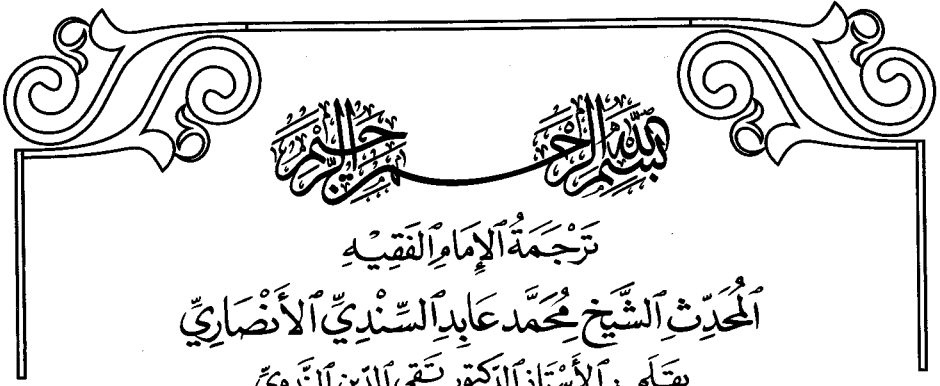 بِسْمِ اللهِ الرَّحْمٰنِ الرَّحِيْمِ
تَرْجَمَةُ ٱلْإِمَامِ ٱلْفَقِيْهِ
ٱلْمُحَدِّثِ ٱلشَّيْخِ مُحَمَّد عَابِدِ ٱلسِّنْدِيِّ ٱلْأَنْصَارِيِّ
بِقَلَمِ : ٱلْأُسْتَاذِ ٱلدُّكْتُورِ تَقِيِّ ٱلدِّينِ ٱلنَّدْوِيِّ